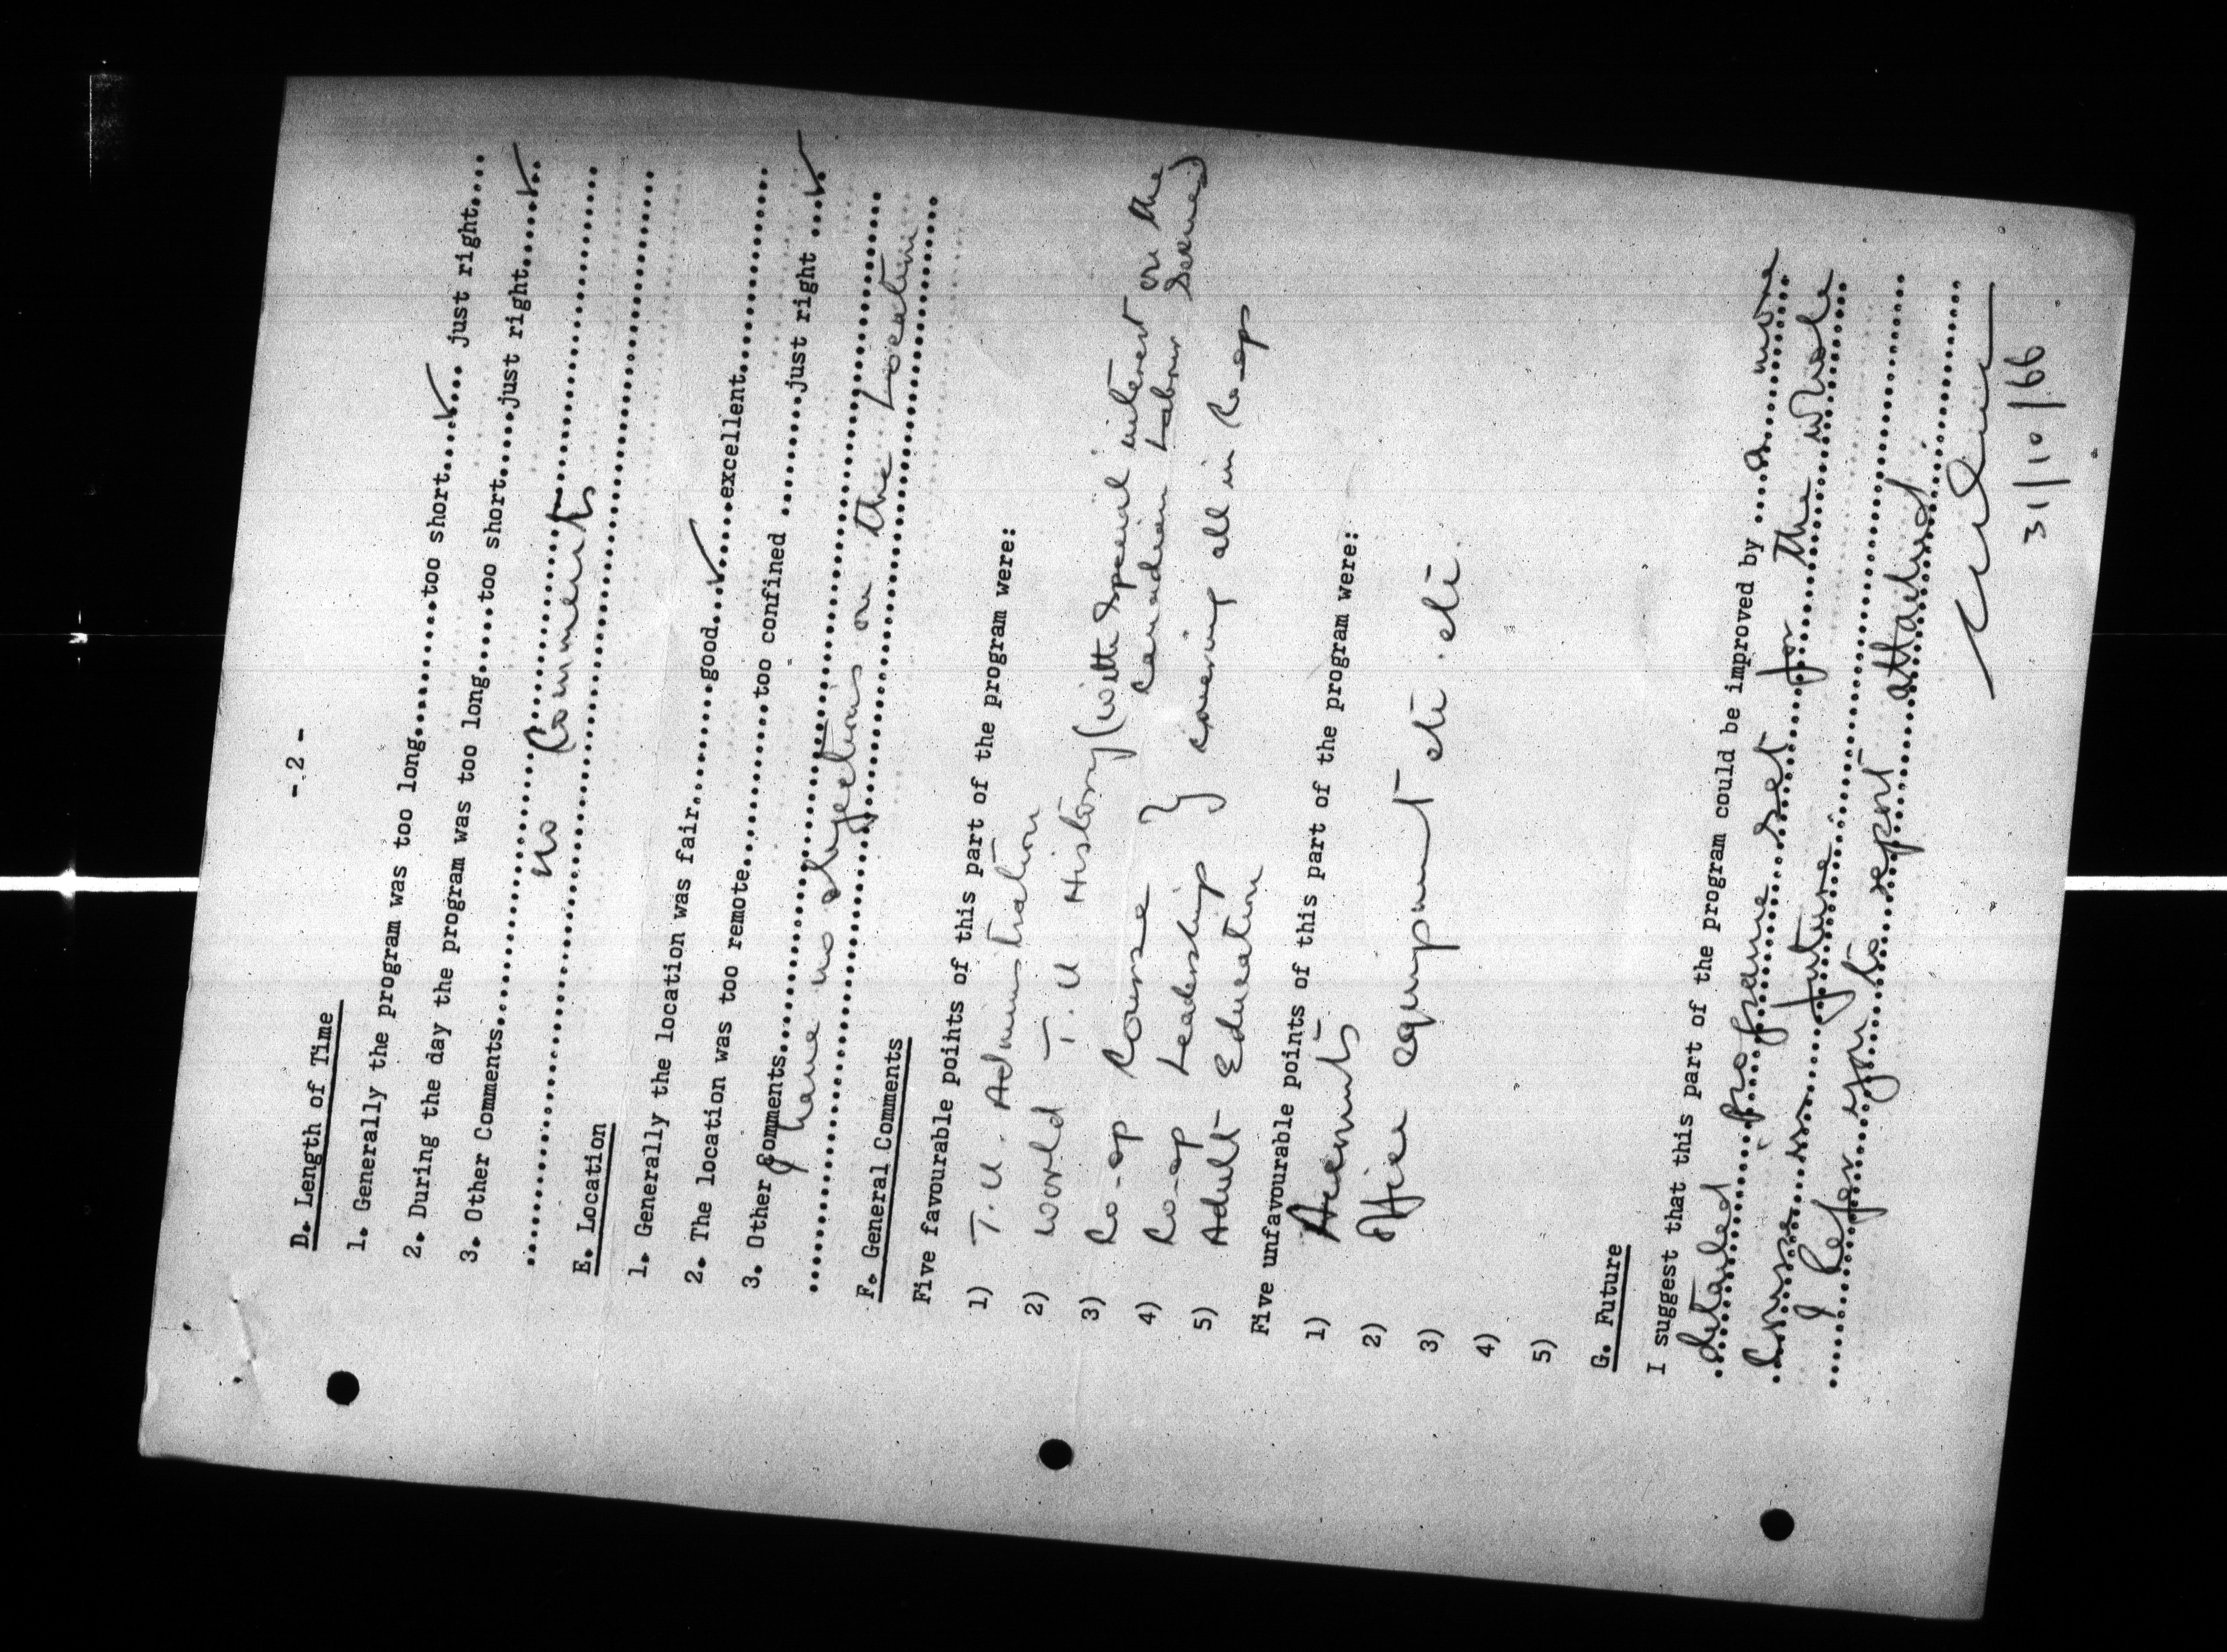 - 2 -
D. Length of Time
1. Generally the program was too long..........too short....✓... just right....
2. During the day the program was too long....too short.....just right.....✓..
3. Other Comments..........................................
no Comments
E. Location
1. Generally the location was fair........good...✓...excellent..................
2. The location was too remote..........too confined .......just right ...✓.
3. Other Comments..........................................
I have no objections on the Location
F. General Comments
Five favourable points of this part of the program were:
1) T.U. Administration
2) World T.U History (with special interest on the
Canadian Labour Scene)
3) Co-op Course
4) Co-op Leadership } covering all in Co-op
5) Adult Education
Five unfavourable points of this part of the program were:
1) Accounts
2) Office equipment etc. etc.
3)
4)
5)
G. Future
I suggest that this part of the program could be improved by ....a more
detailed programme set for the whole
Course in future.
I Refer you to report attached.
31/10/66